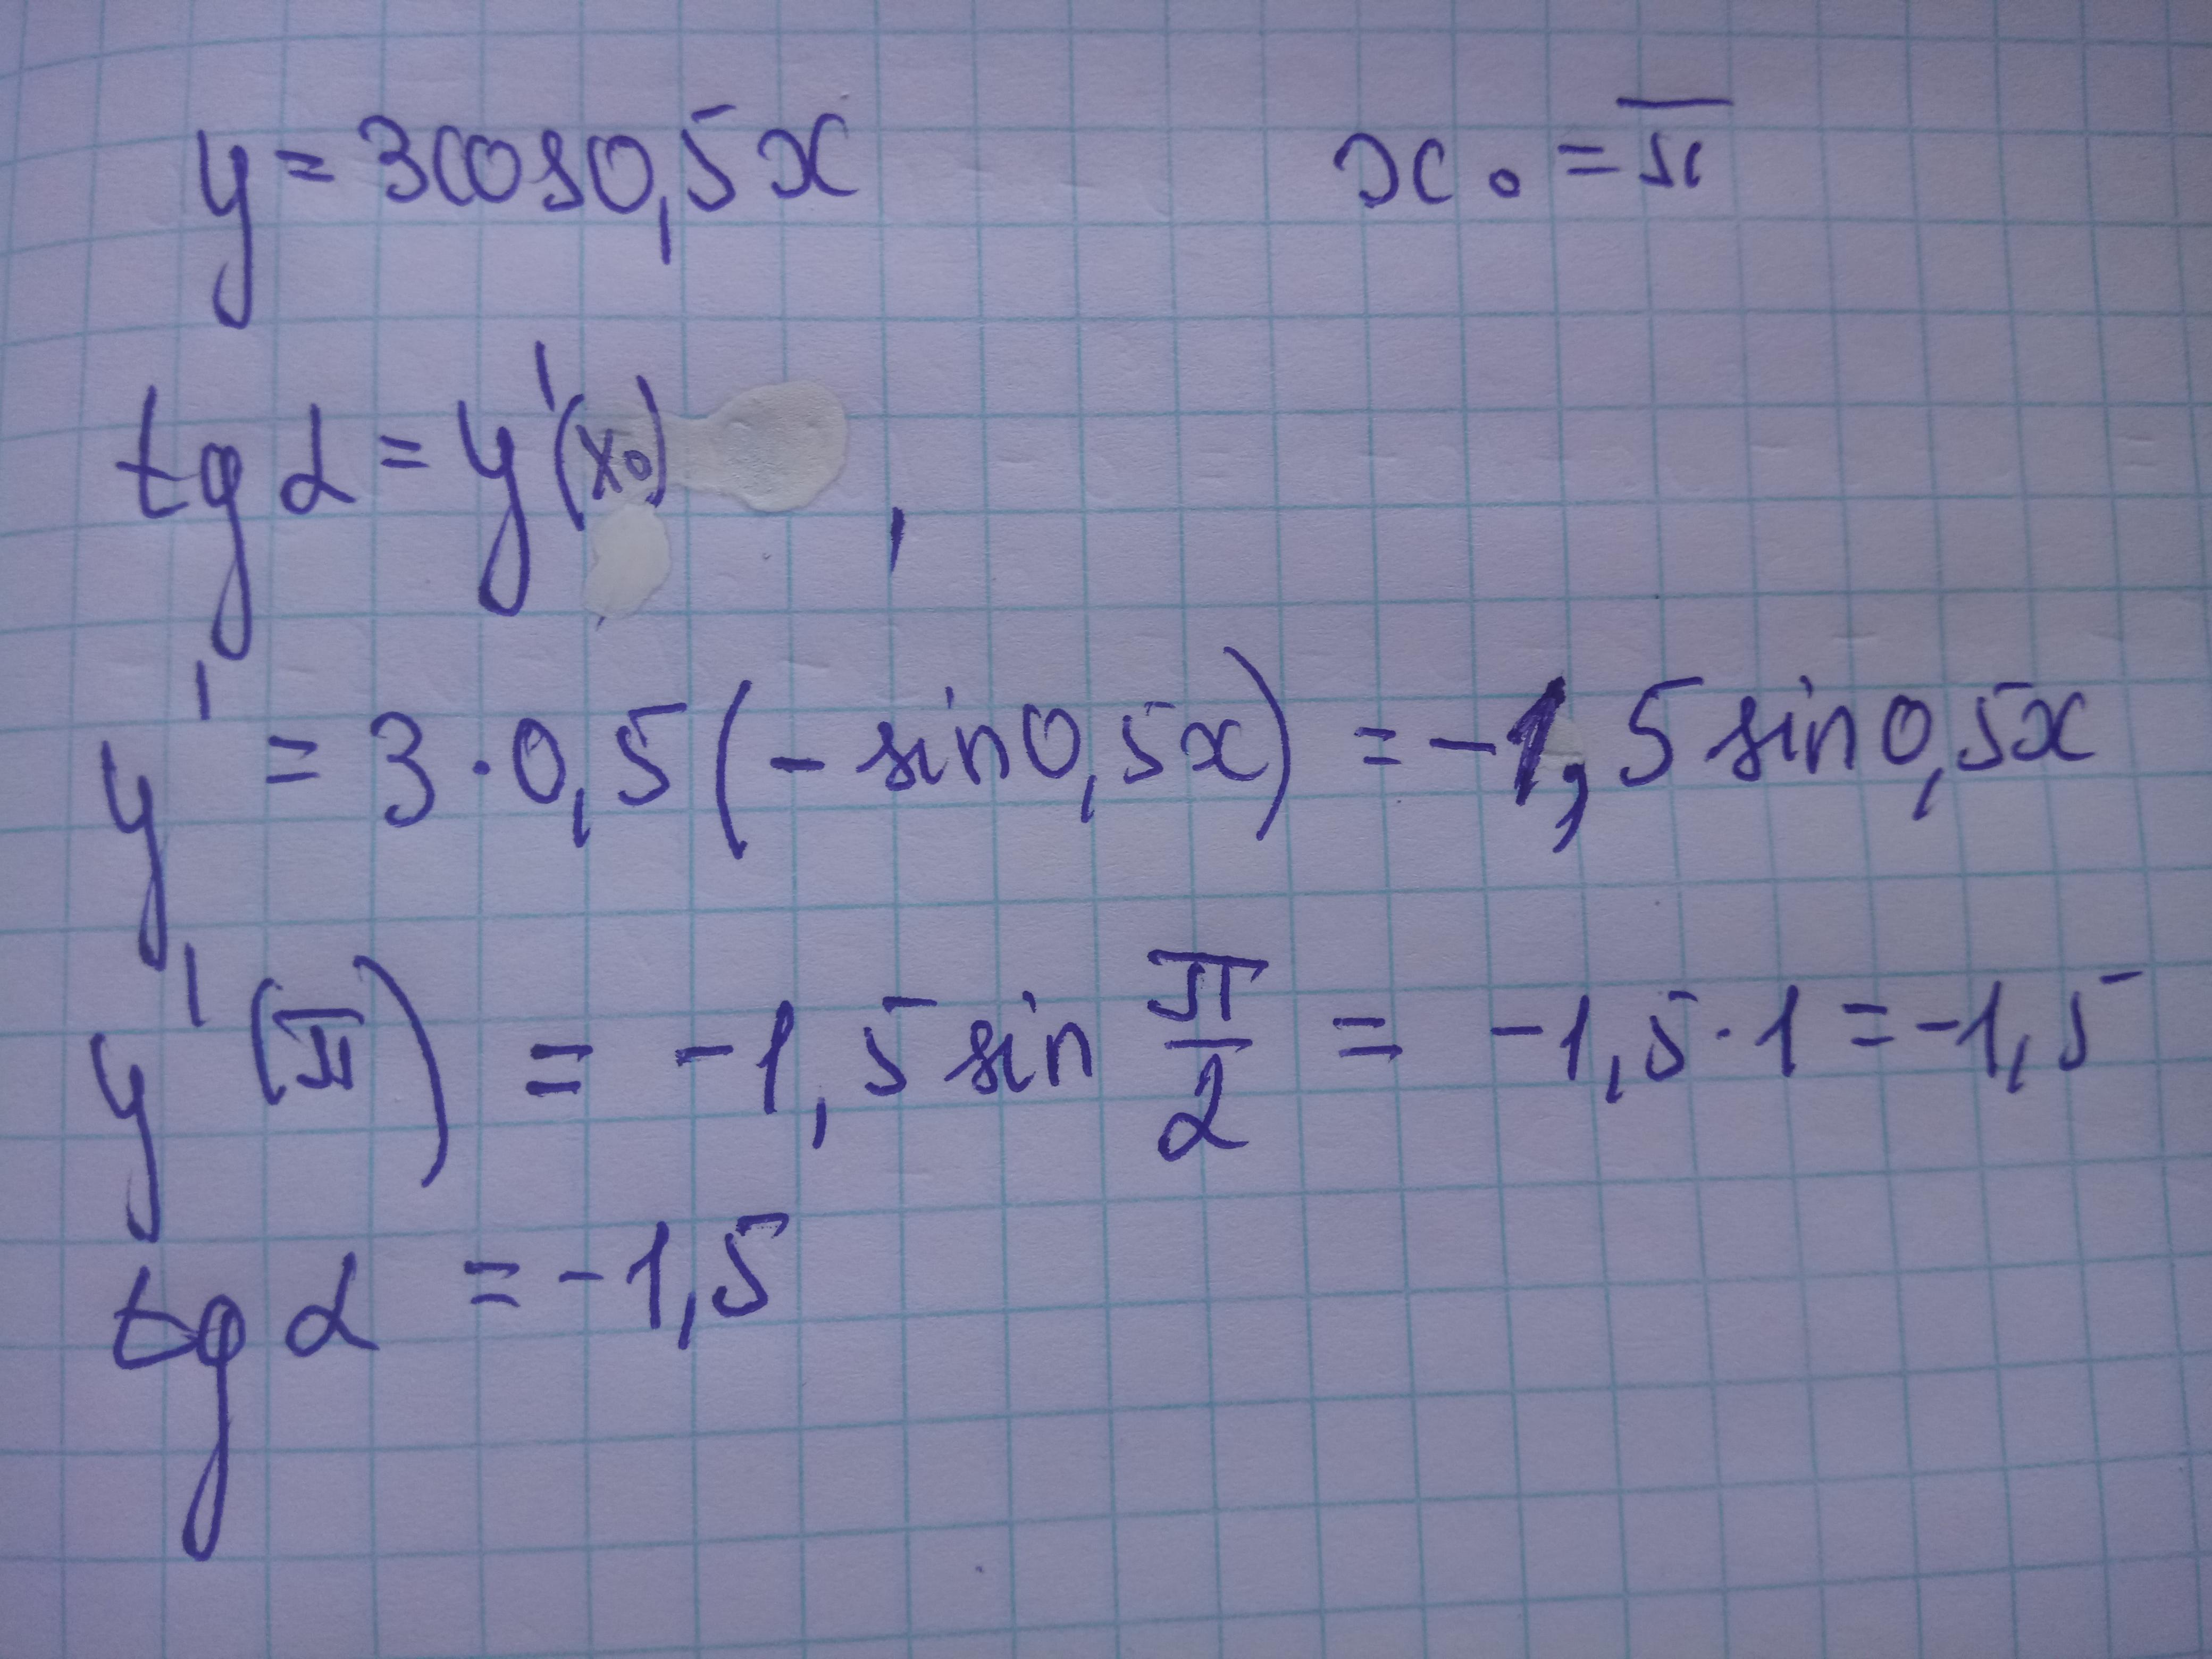 y = 3cos0,5x x₀ = π
tg α = y'(x₀) ,
y' = 3 · 0,5 (- sin0,5x) = -1,5 sin0,5x
y'(π) = -1,5 sin π/2 = -1,5 · 1 = -1,5
tg α = -1,5